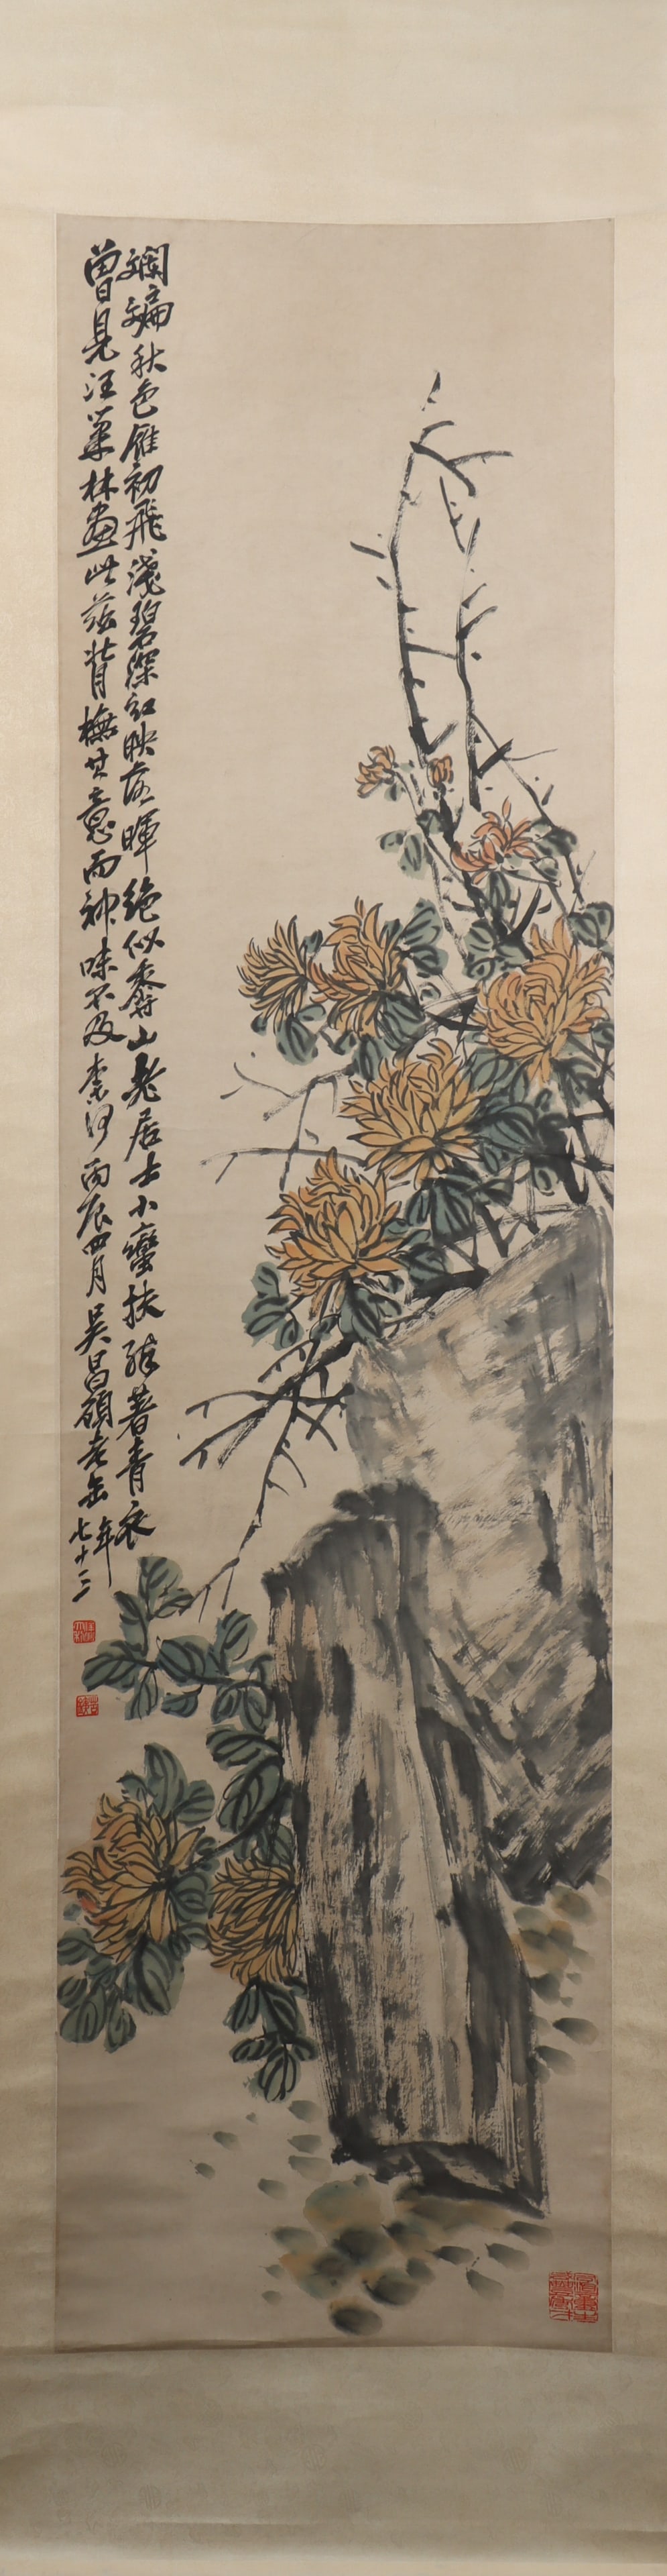 斕斒秋色雁初飛淺碧深紅映落暉絕似香山老居士小蠻扶醉著青衣
曾見汪巢林畫此茲背橅其意而神味不及柰何丙辰四月吳昌碩老缶年
七十三